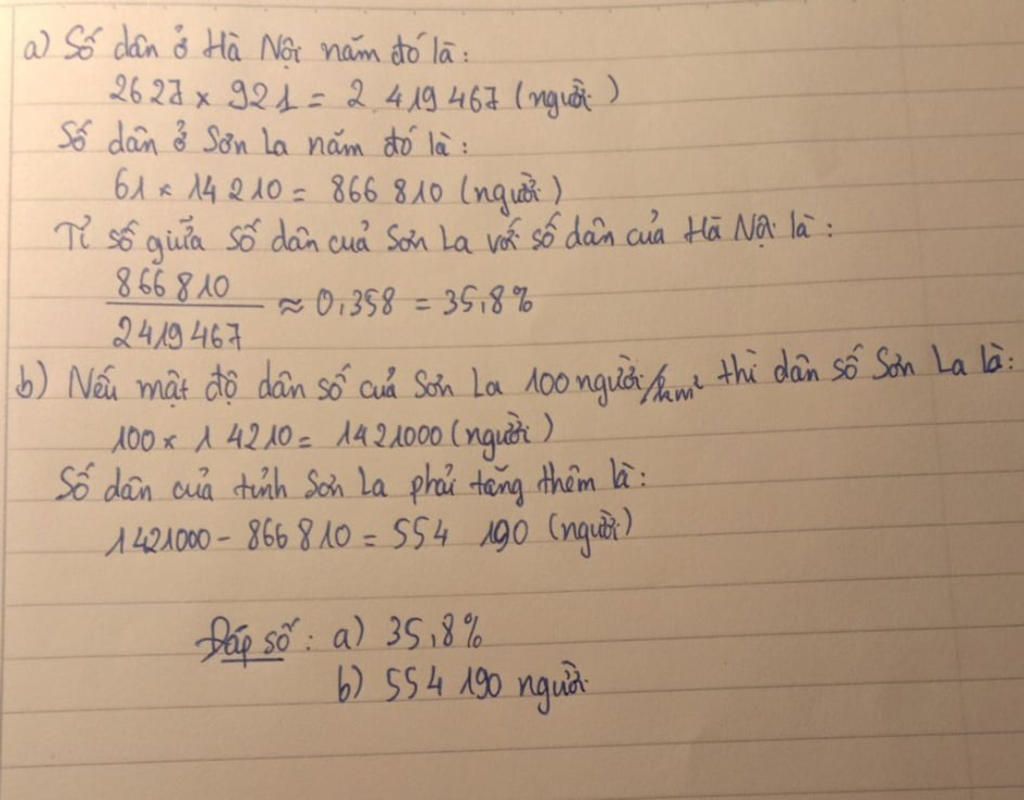 a) Số dân ở Hà Nội năm đó là:
2627 × 921 = 2 419 467 (người)
Số dân ở Sơn La năm đó là:
61 × 14 210 = 866 810 (người)
Tỉ số giữa số dân của Sơn La với số dân của Hà Nội là:
866 810
2419 467 ≈ 0,358 = 35,8%
b) Nếu mật độ dân số của Sơn La 100 người/km² thì dân số Sơn La là:
100 × 1 4210 = 1421000 (người)
Số dân của tỉnh Sơn La phải tăng thêm là:
1421000 - 866 810 = 554 190 (người)
Đáp số: a) 35,8%
b) 554 190 người